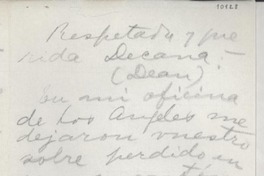 10128
Respetada y que
rida Decana:-
(Dean)
En mi oficina
de Los Angeles me
dejaron vuestro
sobre perdido en